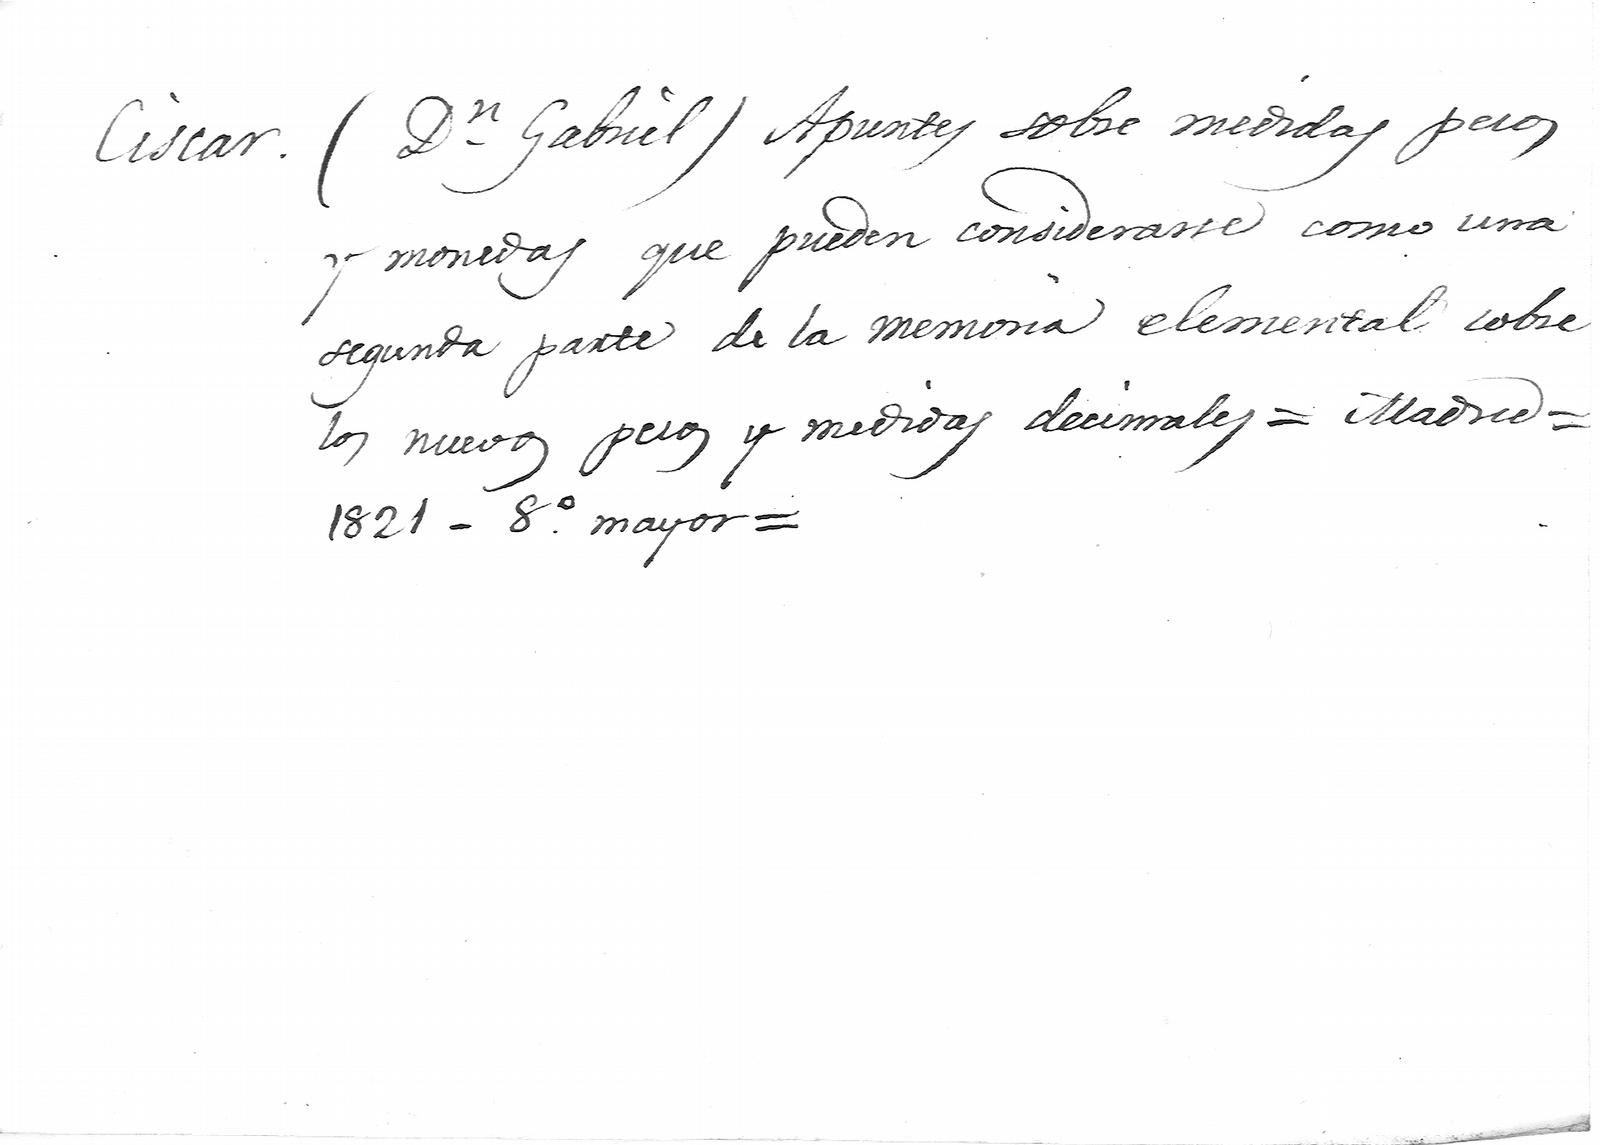 Ciscar. (Dn Gabriel) Apuntes sobre medidas pesos
y monedas que pueden considerarse como una
segunda parte de la memoria elemental sobre
los nuevos pesos y medidas decimales = Madrid =
1821 - 8.º mayor =